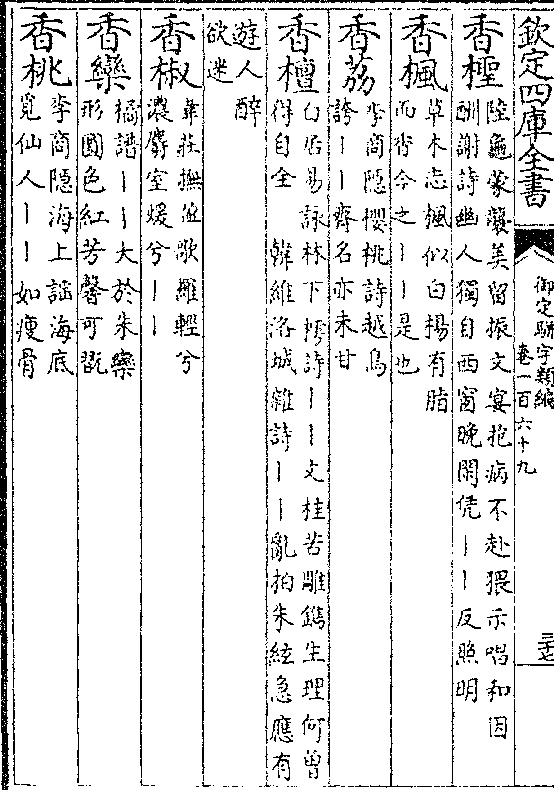 欽定四庫全書
御定駢字類編
卷一百六十九
香檉
陸龜蒙襲美留振文宴抱病不赴猥示唱和因
酬謝詩幽人獨自西窗晚閑凭丨丨反照明
香楓
草木志楓似白楊有脂
而香今之丨丨是也
香荔
李商隱櫻桃詩越鳥
誇丨丨齊名亦未甘
香檀
白居易詠林下樗詩丨丨文桂苦雕鐫生理何曾
得自全 韓維洛城雜詩丨丨亂拍朱絃急應有
遊人醉
欲迷
香椒
韋莊撫盈歌羅輕兮
濃麝室煖兮丨丨
香欒
橘譜丨丨大於朱欒
形圓色紅芳馨可翫
香桃
李商隱海上謠海底
覓仙人丨丨如瘦骨